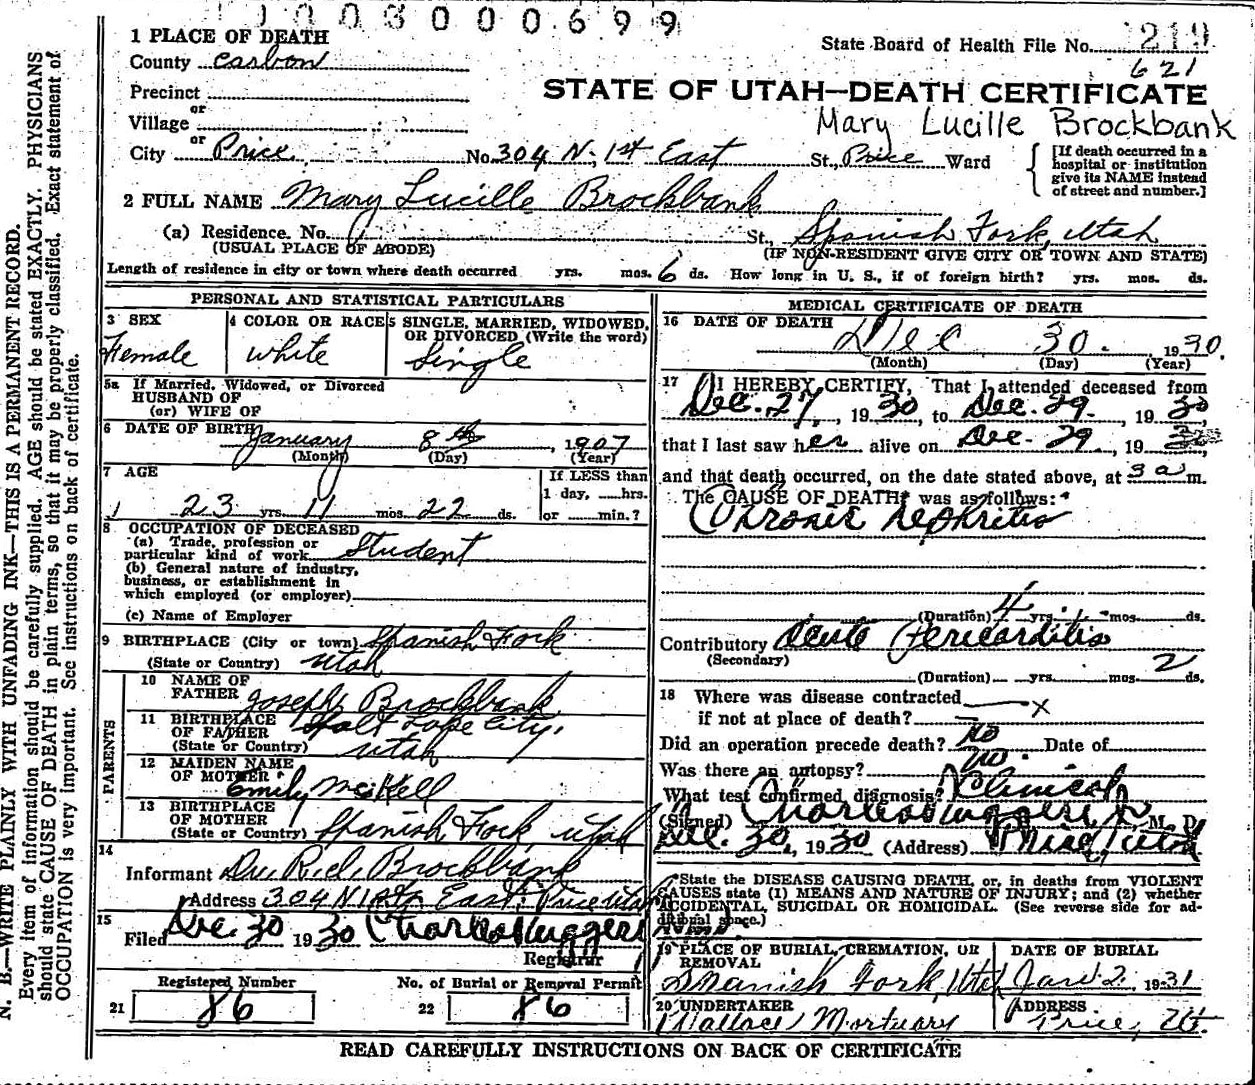 1003000699
1 PLACE OF DEATH
County Carbon
State Board of Health File No. 219
621
Precinct
or
Village
STATE OF UTAH—DEATH CERTIFICATE
Mary Lucille Brockbank
or
City Price No. 304 N. 1st East St., Price Ward
[If death occurred in a hospital or institution give its NAME instead of street and number.]
2 FULL NAME Mary Lucille Brockbank
(a) Residence. No. St., Spanish Fork, Utah
(USUAL PLACE OF ABODE) (IF NON-RESIDENT GIVE CITY OR TOWN AND STATE)
Length of residence in city or town where death occurred yrs. mos. 6 ds. How long in U. S., if of foreign birth? yrs. mos. ds.
PERSONAL AND STATISTICAL PARTICULARS
3 SEX Female
4 COLOR OR RACE White
5 SINGLE, MARRIED, WIDOWED, OR DIVORCED (Write the word) Single
5a If Married, Widowed, or Divorced
HUSBAND OF
(or) WIFE OF
6 DATE OF BIRTH January 8th, 1907
(Month) (Day) (Year)
7 AGE
23 yrs. 11 mos. 22 ds.
If LESS than
1 day, hrs.
or min.?
8 OCCUPATION OF DECEASED
(a) Trade, profession or
particular kind of work Student
(b) General nature of industry,
business, or establishment in
which employed (or employer)
(c) Name of Employer
9 BIRTHPLACE (City or town) Spanish Fork
(State or Country) Utah
PARENTS
10 NAME OF
FATHER Joseph Brockbank
11 BIRTHPLACE
OF FATHER Salt Lake City,
(State or Country) Utah
12 MAIDEN NAME
OF MOTHER Emily McKell
13 BIRTHPLACE
OF MOTHER
(State or Country) Spanish Fork, Utah
14
Informant Dr. R. L. Brockbank
Address 304 N 1st East. Price Utah
15
Filed Dec. 30 1930 Charles Ruggeri
Registrar
Registered Number
21 86
No. of Burial or Removal Permit
22 86
MEDICAL CERTIFICATE OF DEATH
16 DATE OF DEATH
Dec 30. 1930.
(Month) (Day) (Year)
17 I HEREBY CERTIFY, That I attended deceased from
Dec. 27, 1930, to Dec. 29. 1930
that I last saw her alive on Dec. 29, 1930
and that death occurred, on the date stated above, at 3 a m.
The CAUSE OF DEATH was as follows:
Chronic Nephritis
(Duration) 4 yrs. mos. ds.
Contributory Acute Pericarditis
(Secondary)
(Duration) yrs. mos. 2 ds.
18 Where was disease contracted
if not at place of death? x
Did an operation precede death? No Date of
Was there an autopsy? no.
What test confirmed diagnosis? Clinical
(Signed) Charles Ruggeri Jr., M. D.
Dec. 30, 1930 (Address) Price, Utah
State the DISEASE CAUSING DEATH, or, in deaths from VIOLENT
CAUSES state (1) MEANS AND NATURE OF INJURY; and (2) whether
ACCIDENTAL, SUICIDAL OR HOMICIDAL. (See reverse side for ad-
ditional space.)
19 PLACE OF BURIAL, CREMATION, OR
REMOVAL
Spanish Fork, Utah
DATE OF BURIAL
Jan 2 1931
20 UNDERTAKER
Wallace Mortuary
ADDRESS
Price, Ut.
READ CAREFULLY INSTRUCTIONS ON BACK OF CERTIFICATE
N. B.—WRITE PLAINLY WITH UNFADING INK—THIS IS A PERMANENT RECORD.
Every item of information should be carefully supplied. AGE should be stated EXACTLY. PHYSICIANS
should state CAUSE OF DEATH in plain terms, so that it may be properly classified. Exact statement of
OCCUPATION is very important. See instructions on back of certificate.